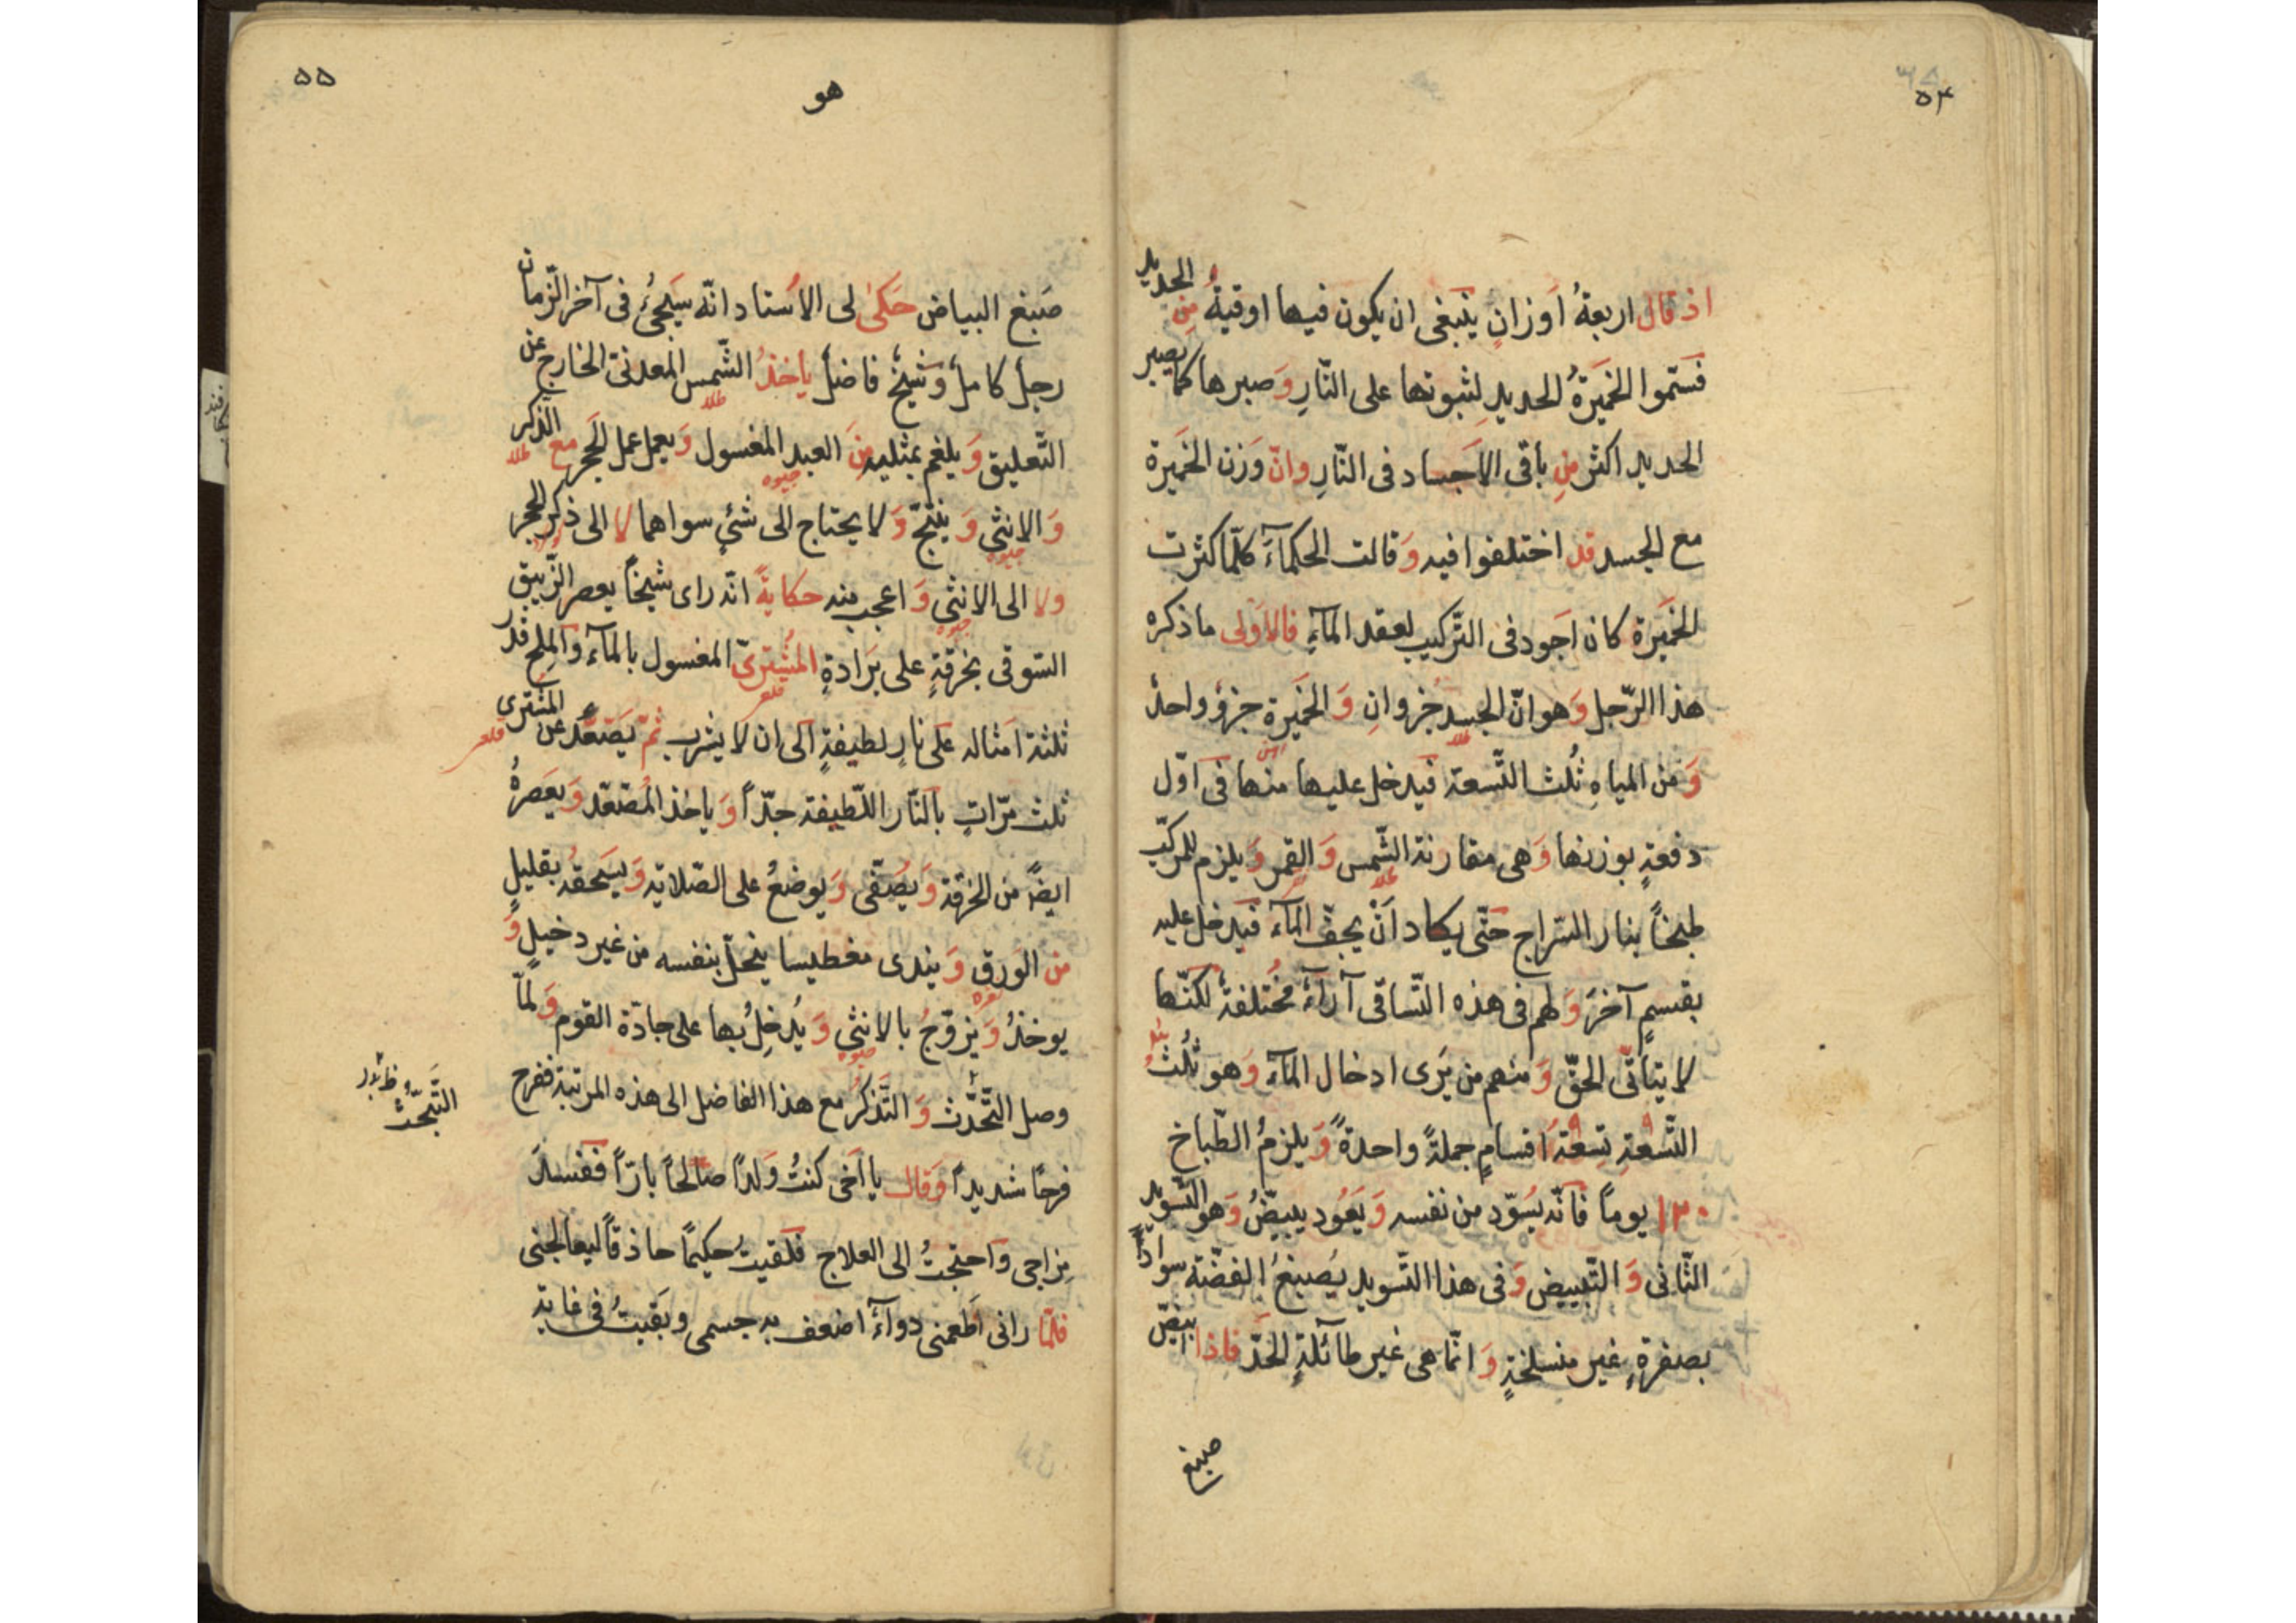 ۵۴
اذ قال اربعةُ اوزانٍ ينبغى ان يكون فيها اوقيةُ من الحديد
فستموا الخميرةُ الحديدِ لثبوتها على النّارِ وَ صبرها كما يصبر
الحديد اكثر مِن باقى الاَجساد فى النّارِ وانّ وَزن الخَميرة
مع الجسد قد اختلفوا فيه وَ قالت الحكمآءَ كلّما كثرت
الخَميَرة كان اجود فى التَّركيب لعقد المآءِ فالاَولى ما ذكره
هذا الرّجل وَ هو انّ الجسد جُزوانِ وَ الخَميَرة جزوٌ واحدٌ
طلا
وَ من المياهِ ثُلث التّسعة فَيدخل عليها منها فى اوّل
دفعةٍ بوزنها وَ هى مقارنة الشّمس وَ القمر وَ يلزم للمركّب
طلا
طبخاً بنار السّراج حَتّى يكاد اَنْ يجفّ المآءَ فيدخل عليه
بقسمٍ آخرَ وَ لهم فى هذه التّساقى آرآءٌ مُختلفةٌ لكنّها
لا يتأتّى الحقّ وَ منهم من يَرى ادخال المآءَ وَ هو ثُلث
التّسْعةِ تِسْعَةُ اقسامٍ جملةً واحدةً وَ يلزمُ الطّباخ
۱۲۰ يوماً فانّه يُسوّد من نفسه وَ يَعُود يبيضّ وَ هو التّسويد
الثّانى وَ التّبييض وَ فى هذا التّسويد يُصبغُ الفضّته سواداً
بصفرةٍ غير منسلخةٍ وَ انّما هى غير طآئلةٍ الحَدّ فاذا ابيضّ
صبغ
۵۵
هو
صَبغ البياض حَكىٰ لى الاُستاد انّه سيَجىُٔ فى آخر الزّمان
رجلٌ كاملٌ وَ شيخٌ فاضلٌ ياخذُ الشّمس المعدنىّ الخارج عن
طلا
التّعليق وَ يلغم بمثليه منَ العبد المغسول وَ يعمل عمل الحَجر مع الذّكر
جيوه
طلا
وَ الانثى وَ ينتجّ وَ لا يحتاج الى شئٍ سواهما لا الى ذكر الحجر
جيوه
ولا الى الانثى وَ اعجب منه حكايةً انّه راى شيخاً يعصر الزّيبق
جيوه
السّوقى بخرقةٍ على بَرادةِ المُشترىّ المغسول بالمآءَ وَ المِلح قدر
قلعى
ثلثة اَمثاله على نارٍ لطيفةٍ الى ان لا يشرب ثمّ يَصّعَّد عن المشترى
قلعى
ثلث مرّاتٍ بالنّار اللّطيفة جدّاً وَ ياخذ المُصّعّد وَ يعَصرهُ
ايضاً من الخرقة وَ يصُفّى وَ يوضعُ على الصّلاية وَ يسَحقه بقليلٍ
من الوَرق وَ يندى مغطيسا ينحلّ بنفسه من غير دخيلٍ وَ
يوخذُ وَ يزوّجُ بالانثى وَ يُدخِلُ بها على جادّة القوم وَ لمّا
جيوه
وصل التّحَدُّث وَ التّذكرُ مع هذا الفاضل الى هذه المرتبة ففرح
التّجّدُّث
فرحًا شديداً وَ قال يا اَخى كنتُ وَلداً صَالحاً بارّاً ففسدَ
مزاجى وَ احتجتُ الى العلاج فلَقيتُ حكيمًا حاذقاً ليعالجنى
فلمّا رانى اَطعمنى دوآءً اضعف به جسمى و بَقيتُ فى غاية